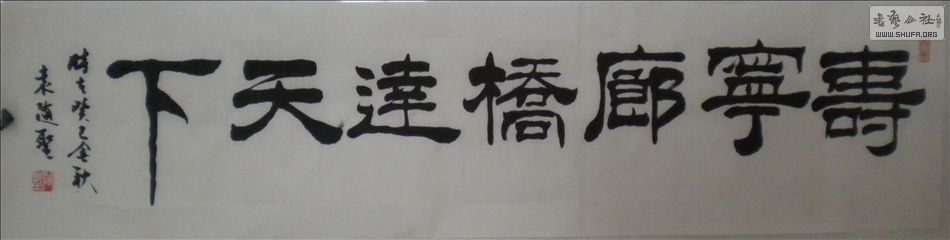 壽寧廊橋達天下
時在癸巳金秋
袁隨聖
書藝公社
WWW.SHUFA.ORG